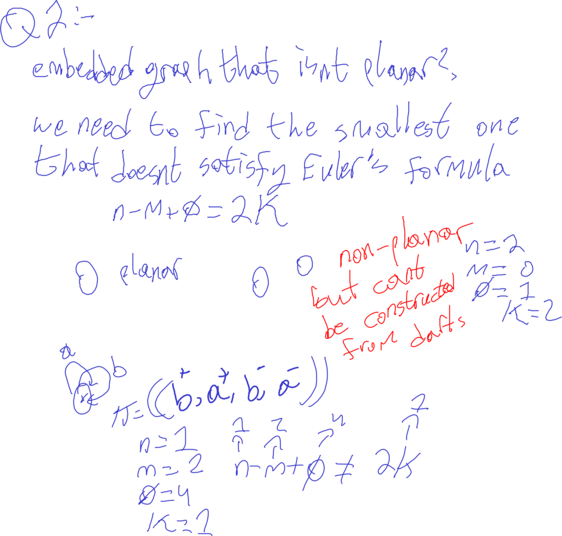 Q2:-
embedded graph that isnt planar?
we need to find the smallest one
that doesnt satisfy Euler's formula
n-m+ø=2K
planar
non-planar
but cant
be constructed
from dafts
n=2
m=0
ø=1
K=2
a
b
π=((b⁺,a⁺,b⁻,a⁻))
n=1
m=2
ø=4
K=1
1 2 4 2
n-m+ø≠ 2K